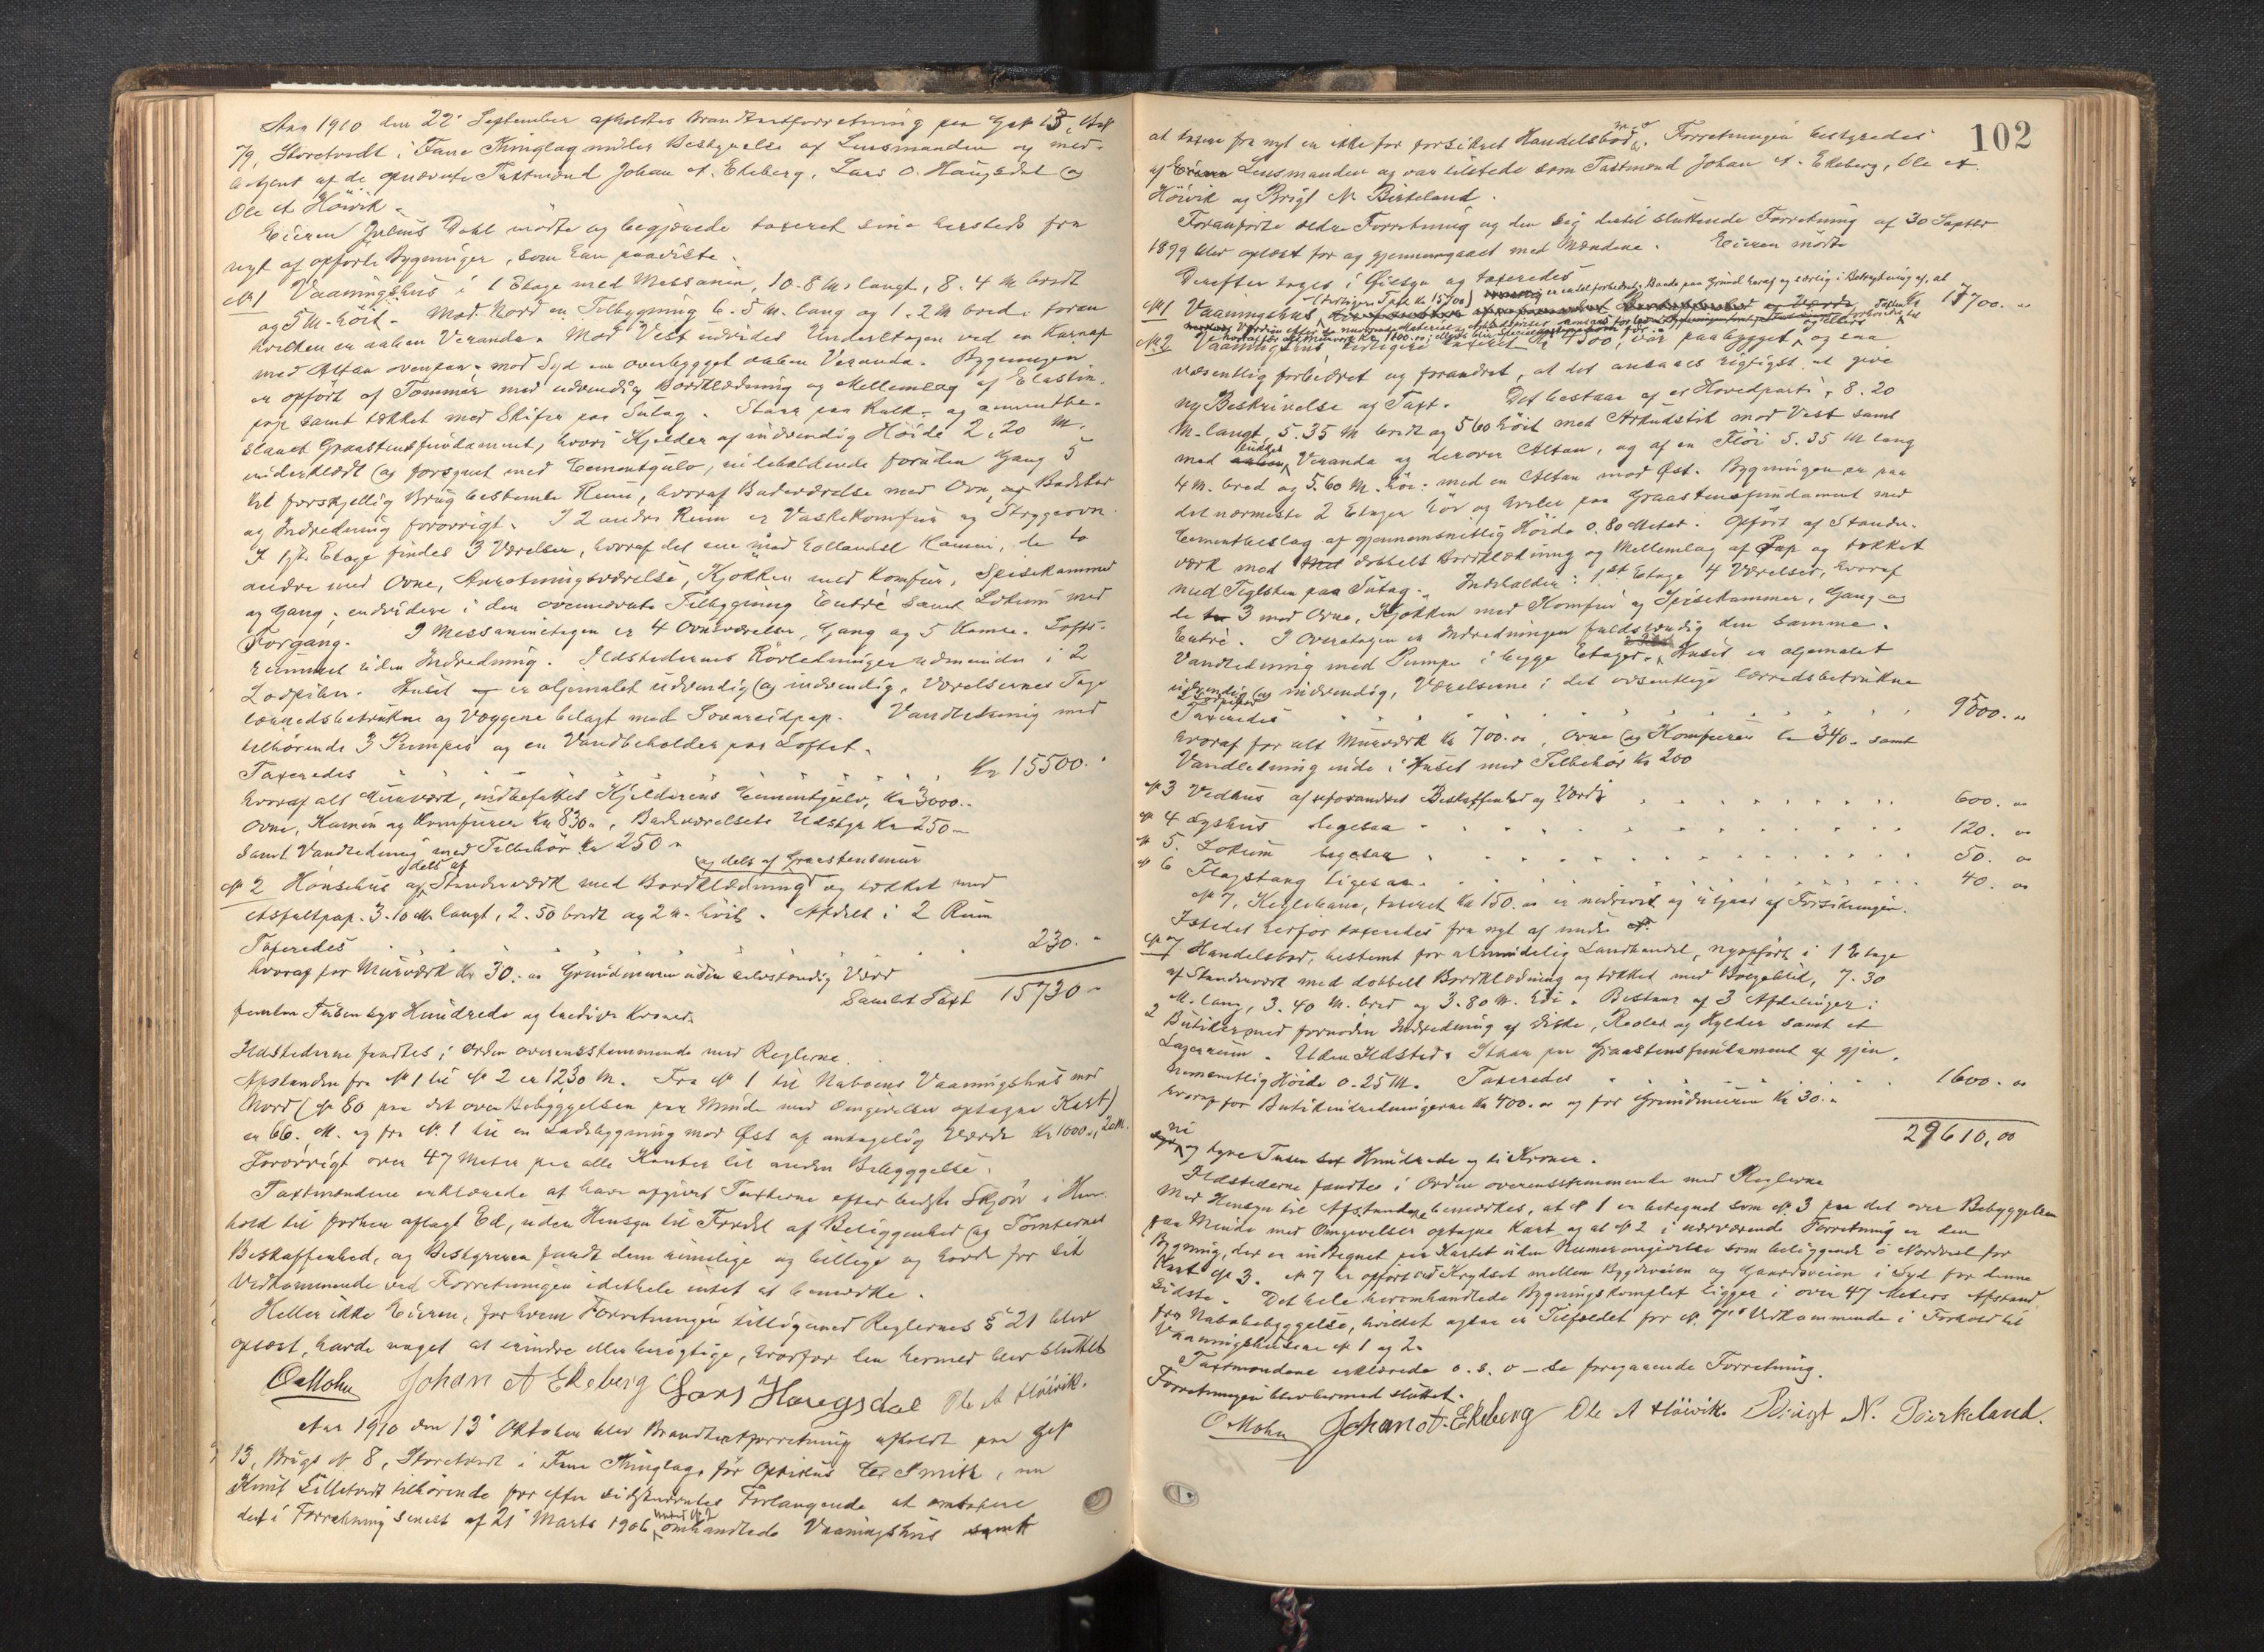 Aar 1910 den 22' September afholdtes Brandtaxtforretning paa G.n 13, B.n
79, Storetvedt i Fane Thinglag under Bestyrelse af Lensmanden og med-
betjent af de opnævnte Taxtmænd Johan A. Ekeberg, Lars O. Haugsdal og
Ole A Höivik.
Eieren Julius Dahl mödte og begjærede taxeret sine hersteds fra
nyt af opförte Bygninger, som han paaviste.
No 1 Vaaningshus i 1 Etage med Messanin, 10.8 M. langt, 8.4 M bredt
og 5 M. höit. Mod Nord en Tilbygning 6.5 M. lang og 1.2 M bred; foran
hvilken en aaben Veranda. Mod Vest udvidet Underetagen ved en Karnap
med Altan ovenpaa; mod Syd en overbygget aaben Veranda. Bygningen
er opfört af Tömmer med udvendig Bordklædning og Mellemlag af Elastin-
pap samt tækket med Skifer paa Sutag. Staar paa Kalk- og cementbe-
slaaet Graastensfundament, hvori Kjelder af indvendig Höide 2,20 M.
underklædt og forsynet med Cementgulv, indeholdende foruden Gang 5
til forskjellig Brug bestemte Rum, hvoraf Badeværelse med Ovn, Badekar
og Indredning forövrigt. I 2 andre Rum er Vaskekomfur og Strygeovn.
I 1ste Etage findes 3 Værelser, hvoraf det ene med hollandsk Kamin, de to
andre med Ovne, Anretningsværelse, Kjökken med Komfur, Spisekammer
og Gang; endvidere i den ovennævnte Tilbygning Entré samt Lokum med
Forgang. I Messaninetagen er 4 Ovnsværelser, Gang og 5 Kamre. Lofts-
rummet uden Indredning. Ildstedernes Rörledninger udmunder i 2
Lodpiber. Huset er oljemalet udvendig og indvendig, Værelsernes Tage
lærredsbetrukne og Væggene belagt med Pap. Vandledning med
tilhörende 3 Pumper og en Vandbeholder paa Loftet.
Taxeredes Kr 15500.
hvoraf alt Murværk, indbefattet Kjelderens Cementgulv, Kr 3000.-
Ovne, Kamin og Komfurer Kr 830.-, Badeværelsets Udstyr Kr 250-
samt Vandledning med Tilbehör Kr 250-
No 2 Hönsehus dels af Stenderværk med Bordklædning og dels af Graastensmur og tækket med
Asfaltpap. 3.10 M. langt, 2.50 bredt og 2 M. höit. Afdelt i 2 Rum
Taxeredes 230.-
hvoraf for Murværk Kr 30.- Grundmuren uden selvstændig Værd
Samlet Taxt 15730-
femten Tusen syv Hundrede og tredive Kroner.
Ildstederne fandtes i Orden overensstemmende med Reglerne.
Afstanden fra No 1 til No 2 er 12.30 M. Fra No 1 til Naboens Vaaningshus mod
Nord (No 80 paa det over Bebyggelsen paa Minde med Omgivelser optagne Kart)
er 66. M. og fra No. 1 til en Ladebygning mod Øst af antagelig Værdi Kr 1000.-, M.
Forövrigt over 47 Meter paa alle Kanter til anden Bebyggelse.
Taxtmændene erklærede at have afgivet Taxterne efter bedste Skjön i Hen-
hold til forhen aflagt Ed, uden Hensyn til Fordel af Beliggenhed og Tomternes
Beskaffenhed, og Bestyreren fandt dem rimelige og billige og havde for sit
Vedkommende ved Forretningen idethele intet at bemærke.
Heller ikke Eieren, for hvem Forretningen tilligemed Reglernes § 21 blev
oplæst, havde noget at erindre eller berigtige, hvorfor den hermed blev sluttet
O Mohn Johan A Ekeberg Lars Haugsdal Ole A Höivik.
Aar 1910 den 13' Oktober blev Brandtaxtforretning afholdt paa G.n
13, Brugs No 8, Storetvedt i Fane Thinglag, för Optikus Smith, nu
Knut Lilletvedt tilhörende for efter sidstnævntes Forlangende at omtaxere
det i Forretning senest af 21' Marts 1906 under No. 2 omhandlede Vaaningshus samt
102
at taxere fra nyt en ikke för forsikret Handelsbod m. v. Forretningen bestyredes
af Lensmanden og var tilstede som Taxtmænd Johan A. Ekeberg, Ole A.
Höivik og Brigt N. Birkeland.
Foranförte ældre Forretning og den sig dertil sluttende Forretning af 30 Septbr
1899 blev oplæst for og gjennemgaaet med Mændene. Eieren mödte
Derefter toges i Öiesyn og taxeredes
No 1 Vaaningshus (tidligere Taxt Kr 15700) er i forbedret Stand paa Grund heraf og særlig i Betragtning af, at Taxten Kr 17700.-
Værdien efter de nuværende Material og
No. 2 Vaaningshus, tidligere taxeret Kr 4500, var paabygget og ellers saa
væsentlig forbedret og forandret, at det ansaaes rigtigst at give
ny Beskrivelse og Taxt. Det bestaar af et Hovedparti, 8.20
M. langt, 5.35 M bredt og 5.60 höit med Arkudstik mod Vest samt
med lukket Veranda og derover Altan, og af en Flöi 5.35 M lang
4 M. bred og 5.60 M. höi: med en Altan mod Øst. Bygningen er paa
det nærmeste 2 Etager höi og hviler paa Graastensfundament med
Cementbeslag af gjennemsnitlig Höide 0.80 Meter. Opfört af Stender-
værk med dobbelt Bordklædning og Mellemlag af Pap og tækket
med Teglsten paa Sutag. Indeholder: 1ste Etage 4 Værelser, hvoraf
de 3 med Ovne, Kjökken med Komfur og Spisekammer, Gang og
Entré. I Overetagen er Indredningen fuldstændig den samme.
Vandledning med Pumpe i begge Etager. Huset er oljemalet
udvendig og indvendig, Værelserne i det væsentlige lærredsbetrukne
Taxeredes 9500.-
hvoraf for alt Murværk Kr 700.-, Ovne og Komfurer Kr 340.- samt
Vandledning inde i Huset med Tilbehör Kr 200
No 3 Vedhus af uforandret Beskaffenhed og Værdi 600.-
No 4 Lysthus ligesaa 120.-
No 5. Lokum ligesaa 50.-
No 6 Flagstang ligesaa 40.-
No 7, Keglebane, taxeret Kr 150.- er nedrevet og utgaar af Forsikringen.
Istedet herfor taxeredes fra nyt af under
No 7 Handelsbod, bestemt for almindelig Landhandel, nyopfört i 1 Etage
af Stenderværk med dobbelt Bordklædning og tækket med Bölgeblik, 7.30
M. lang, 3.40 M. bred og 3.80 M. höi. Bestaar af 3 Afdelinger:
2 Butiker med fornöden Indredning af Diske, Reoler og Hylder samt et
Lagerrum. Uden Ildsted. Staar paa Graastensfundament af gjen-
nemsnitlig Höide 0.25 M. Taxeredes 1600.-
hvoraf for Butikindredningerne Kr 400.- og for Grundmuren Kr 30.-
29610,00
ni og tyve Tusen sex Hundrede og ti Kroner.
Ildstederne fandtes i Orden overensstemmende med Reglerne
Med Hensyn til Afstandene bemærkes, at No 1 er betegnet som No. 3 paa det over Bebyggelsen
paa Minde med Omgivelser optagne Kart og at No 2 i nærværende Forretning er den
Bygning, der er indtegnet paa Kartet uden Numerangivelse som beliggende i Nordvest for
Kart No 3. No 7 er opfört ved Krydset mellem Bygdeveien og Gaardsveien i Syd for denne
sidste. Det hele heromhandlede Bygningskomplex ligger i over 47 Meters Afstand
fra Nabobebyggelse, hvilket ogsaa er Tilfældet for No. 7's Vedkommende i Forhold til
Vaaningshusene No 1 og 2.
Taxtmændene erklærede o. s. v - se foregaaende Forretning.
Forretningen blev hermed sluttet.
O Mohn Johan A. Ekeberg Ole A Höivik Brigt N. Birkeland.